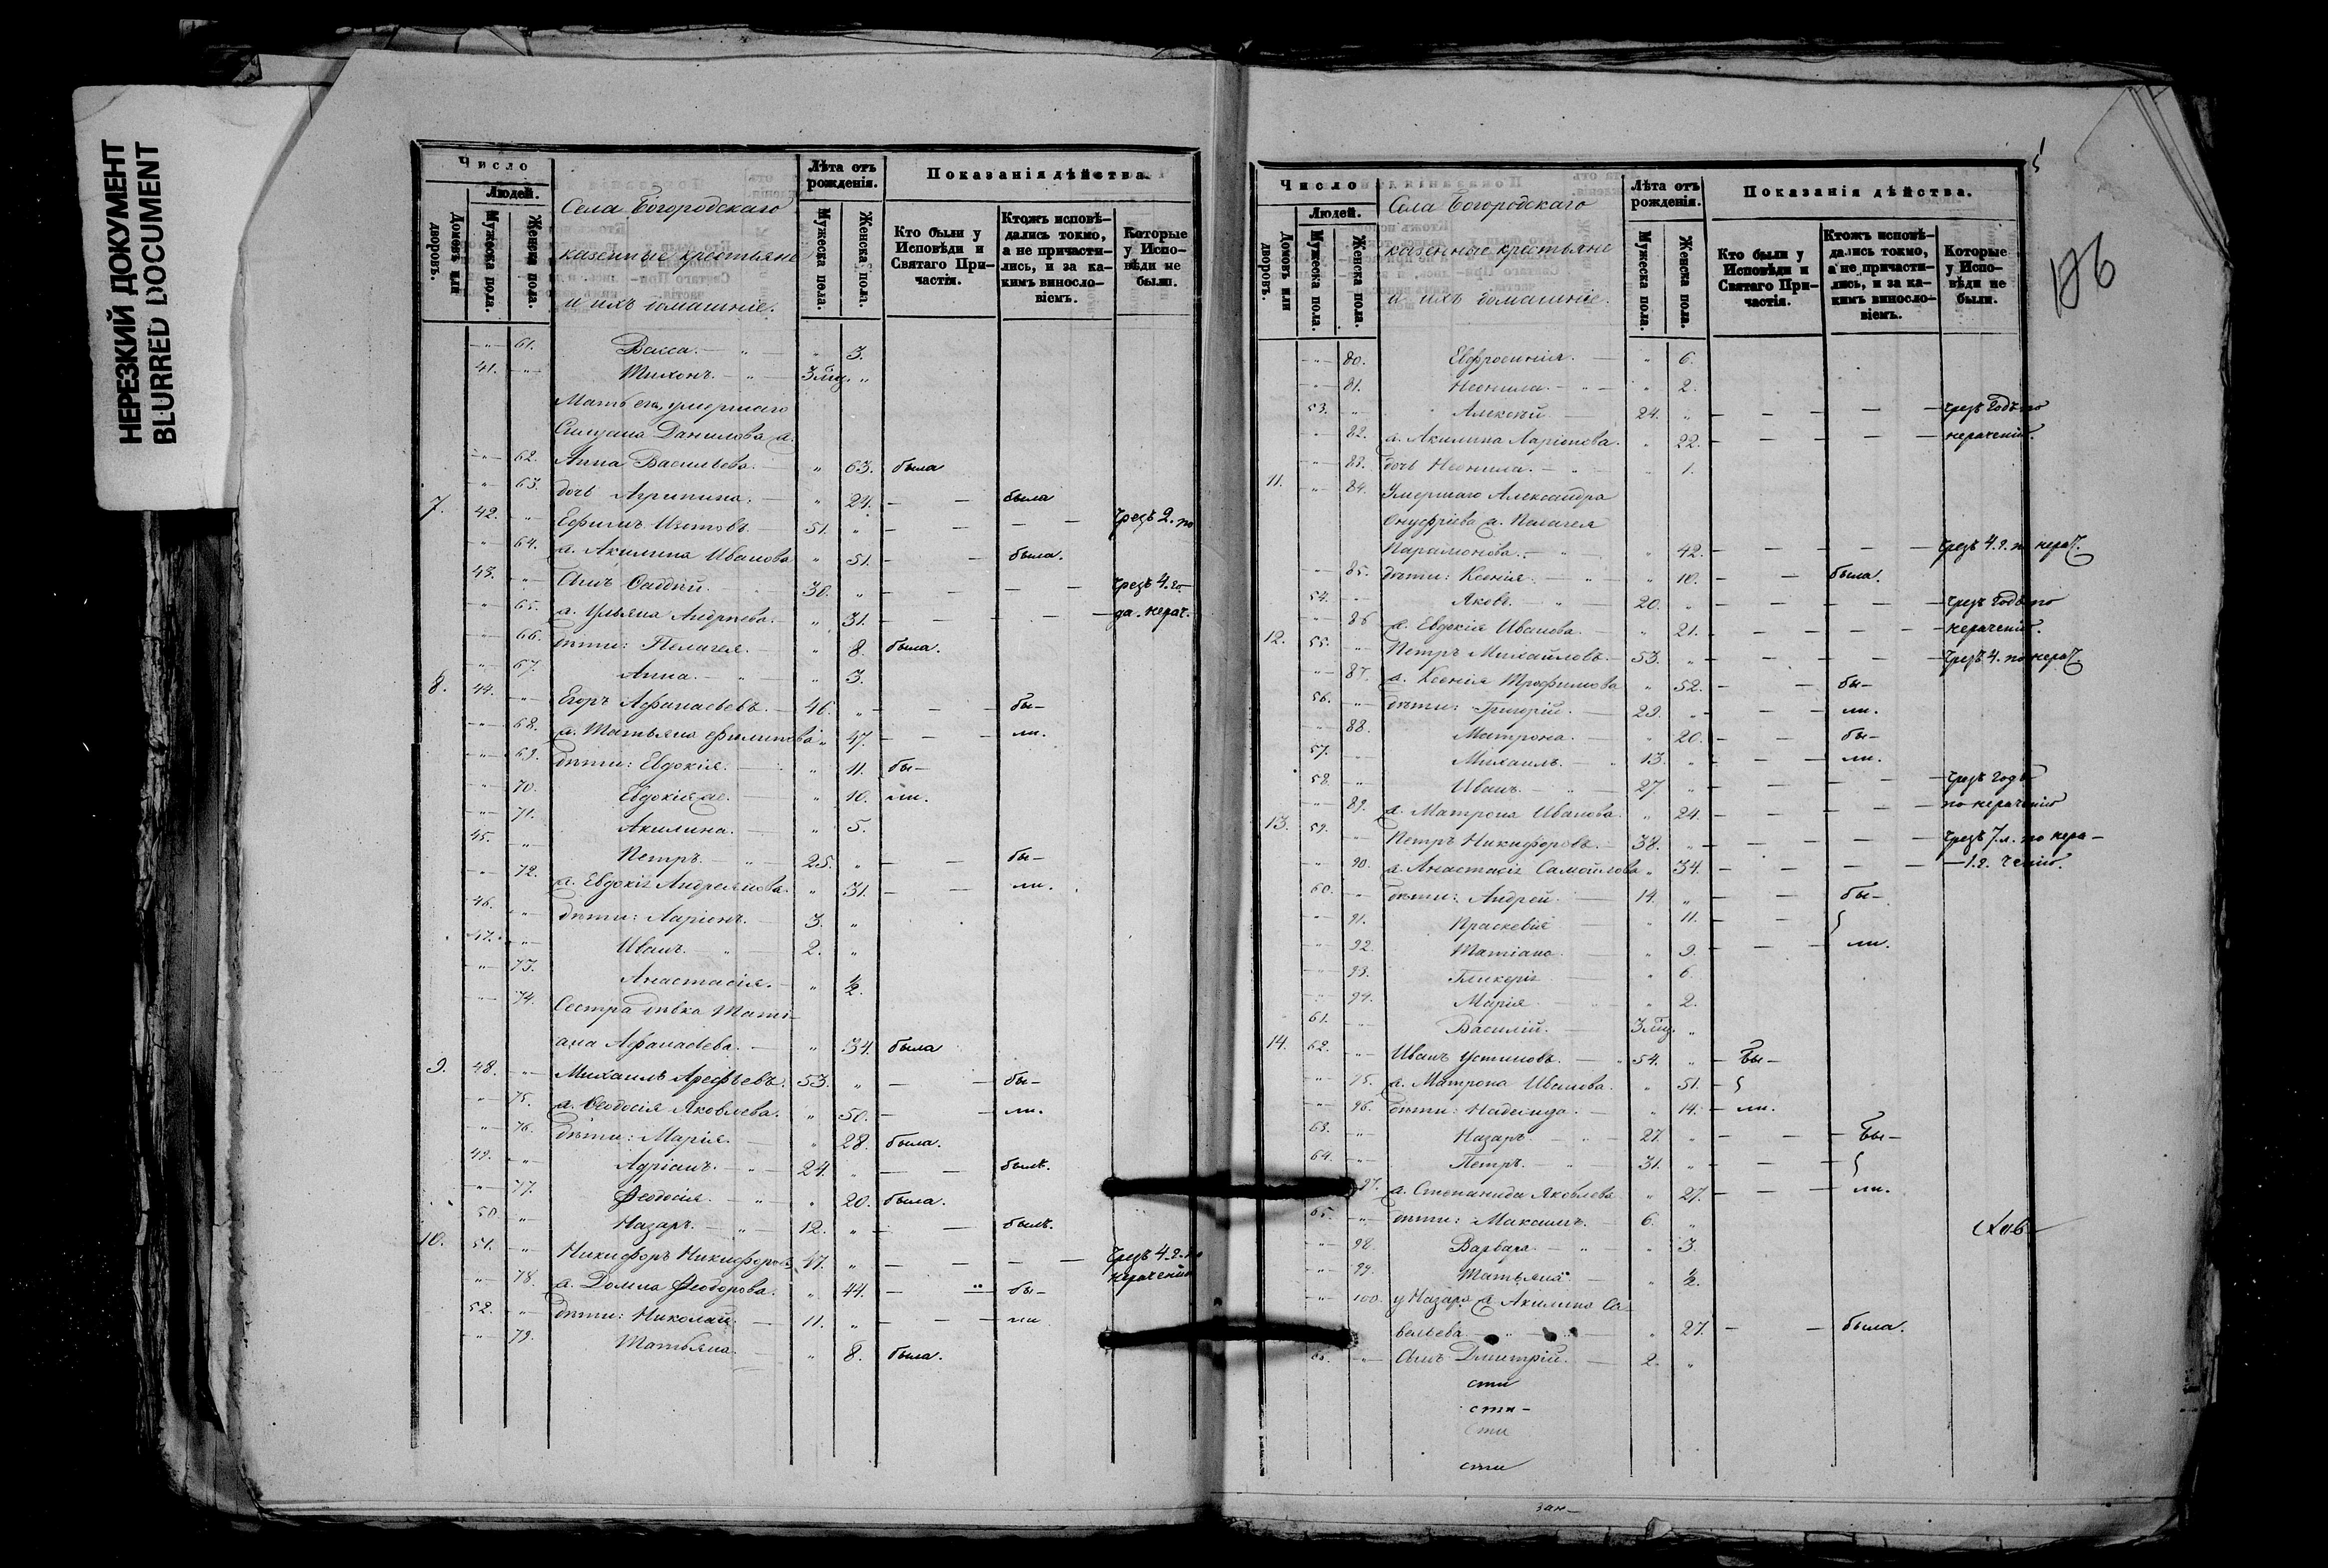 НЕРЕЗКИЙ ДОКУМЕНТ
BLURRED DOCUMENT
Число
Людей.
Домовъ или дворовъ.
Мужеска пола.
Женска пола.
Села Богородскаго
казенные крестьяне
и ихъ домашніе.
Лѣта отъ рожденія.
Мужеска пола.
Женска пола.
Показанія дѣйства.
Кто были у Исповѣди и Святаго Причастія.
Ктожъ исповѣдались токмо, а не причастились, и за какимъ винословіемъ.
Которые у Исповѣди не были.
-„- 61. Васса. - „ - „ 3.
41. -„- Тихонъ. - „ - 3 мц. „
Мать его, умершаго
Силуана Данилова ж.
-„- 62. Анна Васильева. - „ 63. была
-„- 63. дочь Агрипина. - „ 24. - - была
7. 42. -„- Ефимъ Изотовъ. - 51. „ - - - - чрезъ 2. по
-„- 64. ж. Акилина Иванова „ 51. - - была.
43. -„- Сынъ Фаддѣй. - 30. „ - - - - чрезъ 4. го-
-„- 65. ж. Ульяна Андреева. - „ 31. - - - - да. нерач.
-„- 66. дѣти: Пелагея. - „ 8. была.
-„- 67. Анна. - „ - „ 3.
8. 44. -„- Егоръ Афанасьевъ. - 46. „ - - - бы-
-„- 68. ж. Татьяна Филипова „ 47. - - - ли.
-„- 69. дѣти: Евдокія. - „ 11. бы-
-„- 70. Евдокія же. - „ 10. ли.
-„- 71. Акилина. - „ 5.
45. -„- Петръ. - „ - 25. „ - - бы-
-„- 72. ж. Евдокія Андреянова. „ 31. - - ли.
46. -„- дѣти: Ларіонъ. - 3. „
47. -„- Иванъ. - „ - 2. „
-„- 73. Анастасія. - „ ½.
-„- 74. Сестра дѣвка Тати-
ана Афанасьева. - „ 34. была
9. 48. -„- Михаилъ Арефьевъ. 53. „ - - бы-
-„- 75. ж. Ѳеодосія Яковлева. „ 50. - - ли.
-„- 76. дѣти: Марія. - „ 28. была.
49. -„- Адріанъ. - „ - 24. „ - - былъ.
-„- 77. Ѳеодосія. - „ - „ 20. была.
50. -„- Назаръ. - „ - 12. „ - - былъ.
10. 51. -„- Никифоръ Никифоровъ 47. „ - - - - чрезъ 4. г. по
-„- 78. ж. Домна Ѳеодорова. „ 44. - - бы- нерачению
52. -„- дѣти: Николай. - 11. „ - - - ли
-„- 79. Татьяна. - „ 8. была.
Число
Людей.
Домовъ или дворовъ.
Мужеска пола.
Женска пола.
Села Богородскаго
казенные крестьяне
и ихъ домашніе.
Лѣта отъ рожденія.
Мужеска пола.
Женска пола.
Показанія дѣйства.
Кто были у Исповѣди и Святаго Причастія.
Ктожъ исповѣдались токмо, а не причастились, и за какимъ винословіемъ.
Которые у Исповѣди не были.
-„- 80. Евфросинія. - „ 6.
-„- 81. Неонила. - „ - „ 2.
53. -„- Алексѣй. - 24. „ - - - - - чрезъ годъ по
-„- 82. ж. Акилина Ларіонова. „ 22. - - - - - нерачению.
-„- 83. дочь Неонила. - „ - „ 1.
11. -„- 84. Умершаго Александра
Онуфріева ж. Пелагея
Парамонова. - „ - „ 42. - - - - - чрезъ 4. г. п. нерач.
-„- 85. дѣти: Ксенія. - „ - „ 10. - - была.
54. -„- Яковъ. - „ 20. „ - - - - - чрезъ годъ по
-„- 86 ж. Евдокія Иванова. „ 21. - - - - - нерачению.
12. 55. -„- Петръ Михайловъ. - 53. „ - - - - - чрезъ 4. по нерач
-„- 87. ж. Ксенія Трофимова „ 52. - - бы-
56. -„- дѣти: Григорій. - 29. „ - - ли.
-„- 88. Матрона. - „ 20. - - бы-
57. -„- Михаилъ. - „ 13. „ - - ли.
58. -„- Иванъ. - „ - 27. „ - - - - - чрезъ годъ
-„- 89. ж. Матрона Иванова. „ 24. - - - - - по нерачению
13. 59. -„- Петръ Никифоровъ. - 38. „ - - - - - чрезъ 7. л. по нера-
-„- 90. ж. Анастасія Самойлова „ 34. - - - - -1. г. чению.
60. -„- дѣти: Андрей. - 14. „ - - бы-
-„- 91. Праскевія - „ 11. - -
-„- 92. Татіана. - „ 9. - - ли.
-„- 93. Гликерія - „ 6.
-„- 94. Марія - „ - „ 2.
61. -„- Василій. - 3 мц. „
14. 62. -„- Иванъ Устиновъ. - 54. „ - Бы-
-„- 95. ж. Матрона Иванова. „ 51. -
-„- 96. дѣти: Надежда. - „ 14. - ли.
63. -„- Назаръ. - „ - 27. „ - - - Бы-
64. -„- Петръ. - „ - 31. „ - - -
97. ж. Степанида Яковлева „ 27. - - - ли.
65. -„- дѣти: Максимъ. - 6. „
-„- 98. Варвара - „ - „ 3.
-„- 99. Татьяна - „ ½.
-„- 100. у Назара ж. Акилина Са-
вельева „ 27. - - была.
66. -„- Сынъ Дмитрій. - 2. „
сти
сти-
сти
сти
зан-